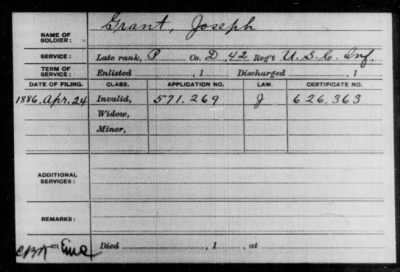 Grant, Joseph
NAME OF SOLDIER:
SERVICE: Late rank, P Co. D, 42 Reg't U.S.C. Inf.
TERM OF SERVICE: Enlisted , 1 Discharged , 1
DATE OF FILING. CLASS. APPLICATION NO. LAW. CERTIFICATE NO.
1886, Apr, 24 Invalid, 571.269 J 626.363
Widow,
Minor,
ADDITIONAL SERVICES:
REMARKS:
Died , 1 , at